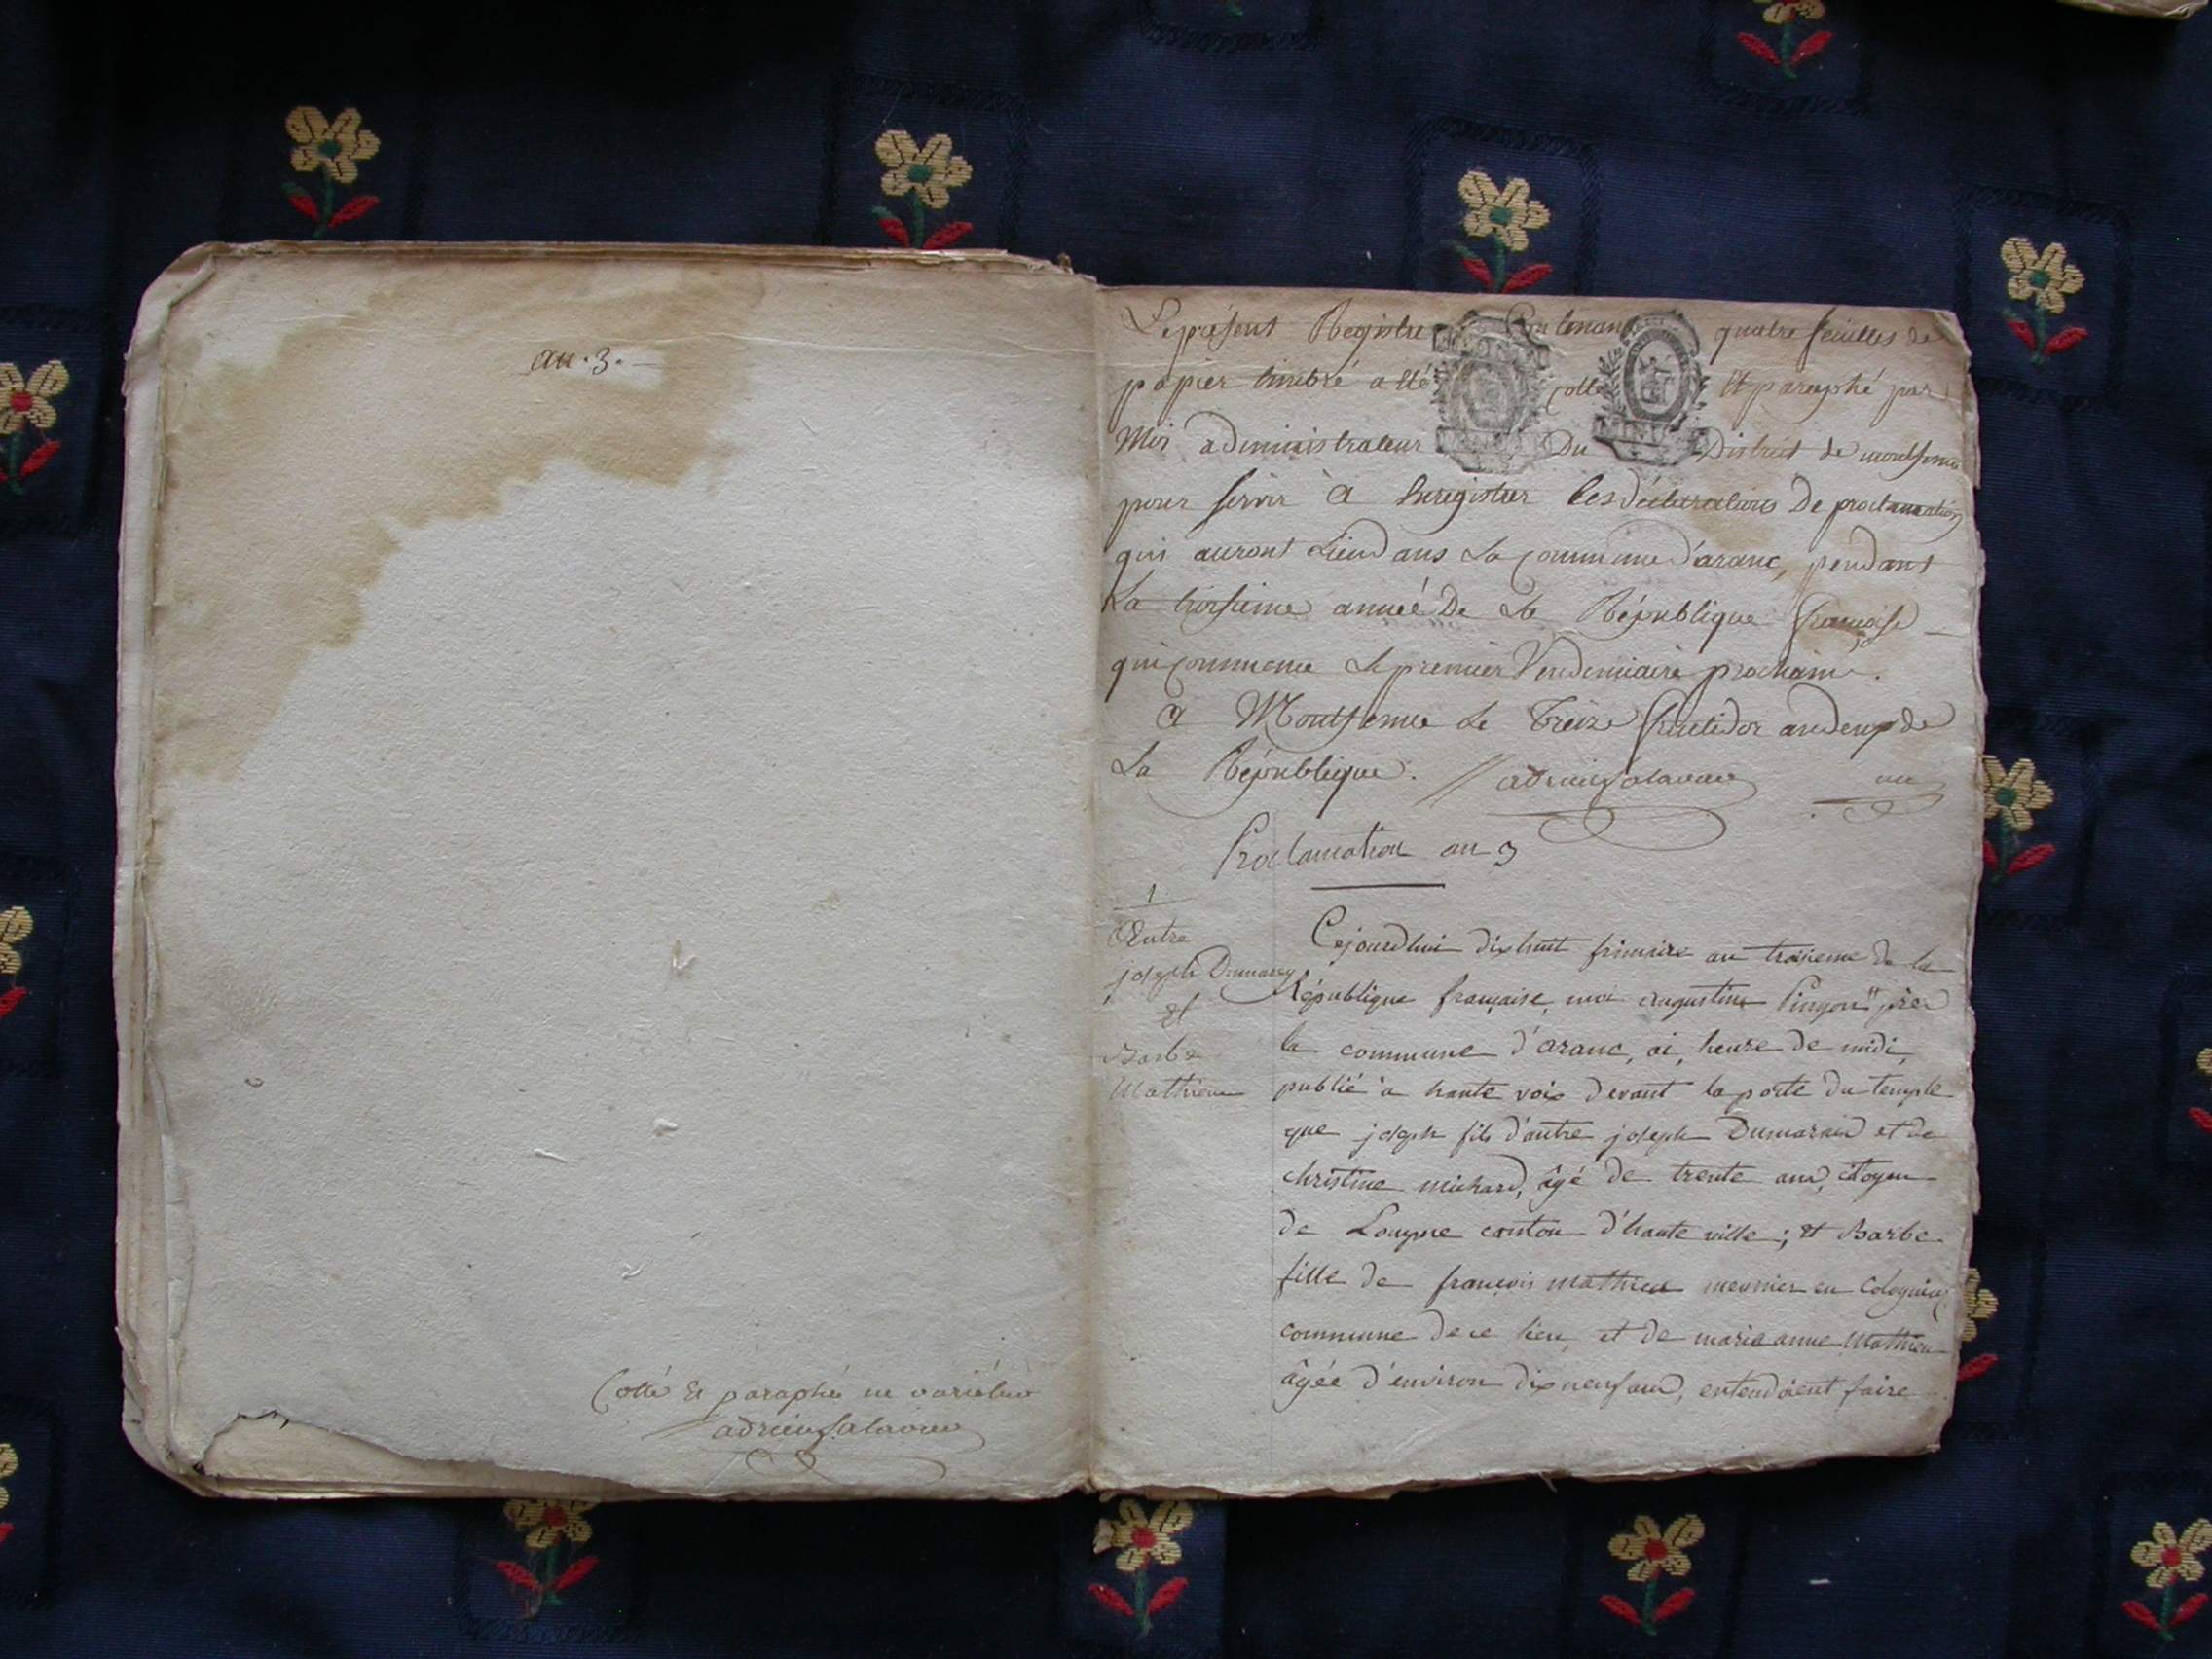 an .3.
Cotté Et paraphé ne varietur
adrien Salavin
Le présent Registre Contenant quatre feuilles de
papier timbré a été cotté Et paraphé par
Moi administrateur Du District de montferme
pour servir a Enregistrer les déclarations De proclamation
qui auront Lieu dans La Commune d'aranc, pendant
La troisieme année De La République française
qui Commence Le premier Vendemiaire prochain.
a Montferme Le Treize fructidor an deux de
La République. adrien Salavin un
Proclamation an 3
1
Entre
joseph Dumarey
Et
Barbe
Mathieu
Cejourdhui dix huit frimaire an troisieme de la
République française, moi augustin
la commune d'aranc, ai, heure de midi,
publié à haute voix devant la porte du temple
que joseph fils d'autre joseph Dumarais et de
christine michard, âgé de trente ans, citoyen
de Lompne canton d'haute ville ; et Barbe
fille de françois mathieu meunier en Colognieu
commune de ce lieu, et de marie anne Mathieu
âgée d'environ dix neuf ans, entendoient faire